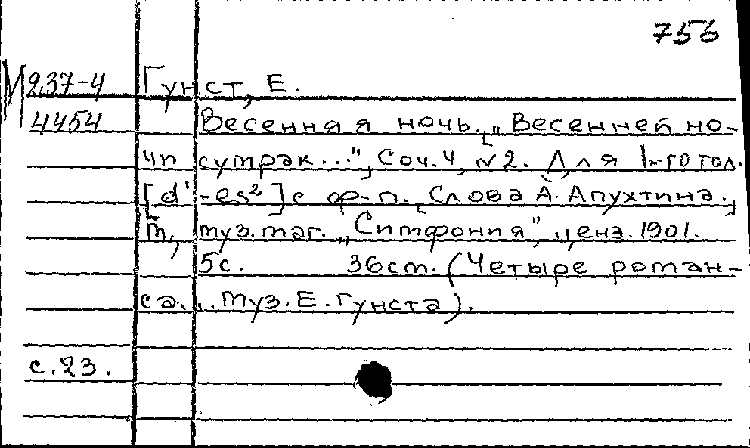 756
М 237-4 Гунст, Е.
4454 Весенняя ночь. „Весенней но-
чи сумрак...", Соч. 4, №2. Для 1-го гол.
[d¹-es²] с ф-п. [Слова А. Апухтина.]
М., муз. маг. „Симфония", ценз. 1901.
5с. 36см. (Четыре роман-
са... Муз. Е. Гунста).
с. 23.